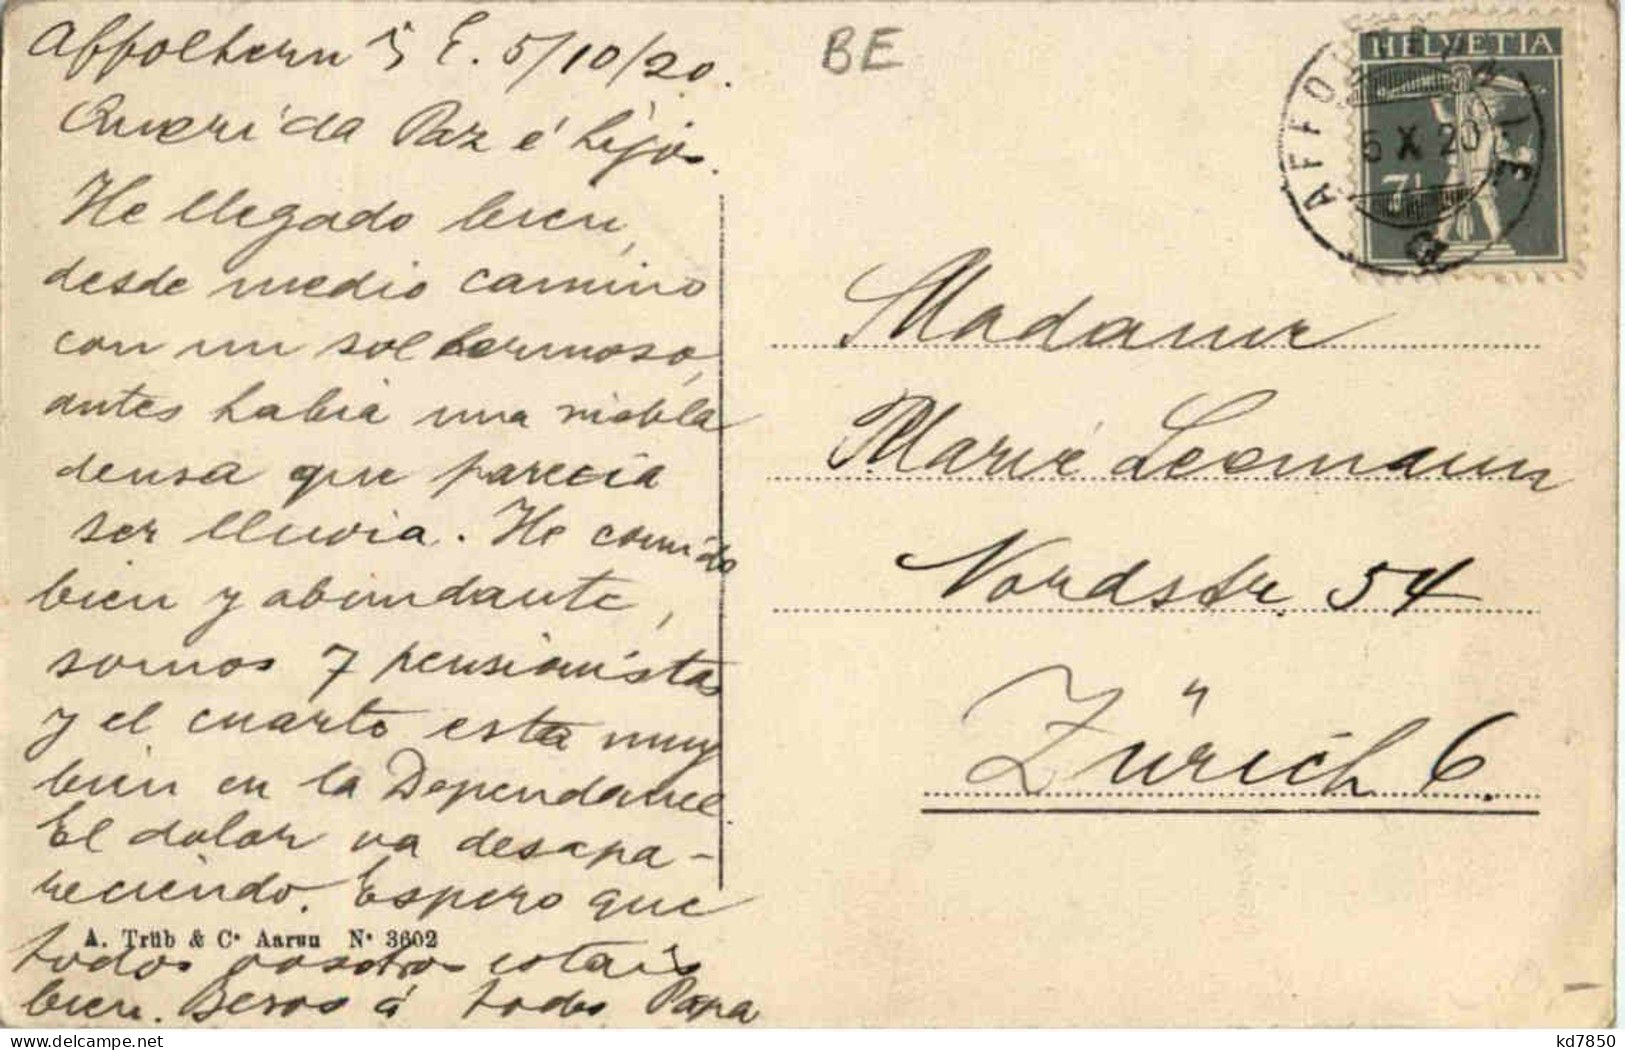 Affoltern i/ E. 5/10/20.
Querida Paz é hijos.
He llegado bien,
desde medio camino
con un sol hermoso,
antes habia una niebla
densa que parecia
ser lluvia. He comido
bien y abundante,
somos 7 pensionistas
y el cuarto esta muy
bien en la Dependance.
El dolor va desapa-
reciendo. Espero que
todos vosotros estais
bien. Besos á todos Papa
A. Trüb & Cº Aarau Nº 3602
BE
HELVETIA
7½
AFFOLTERN i/E
5 X 20
Madame
Marie Leemann
Nordstr. 54
Zürich 6.
kd7850